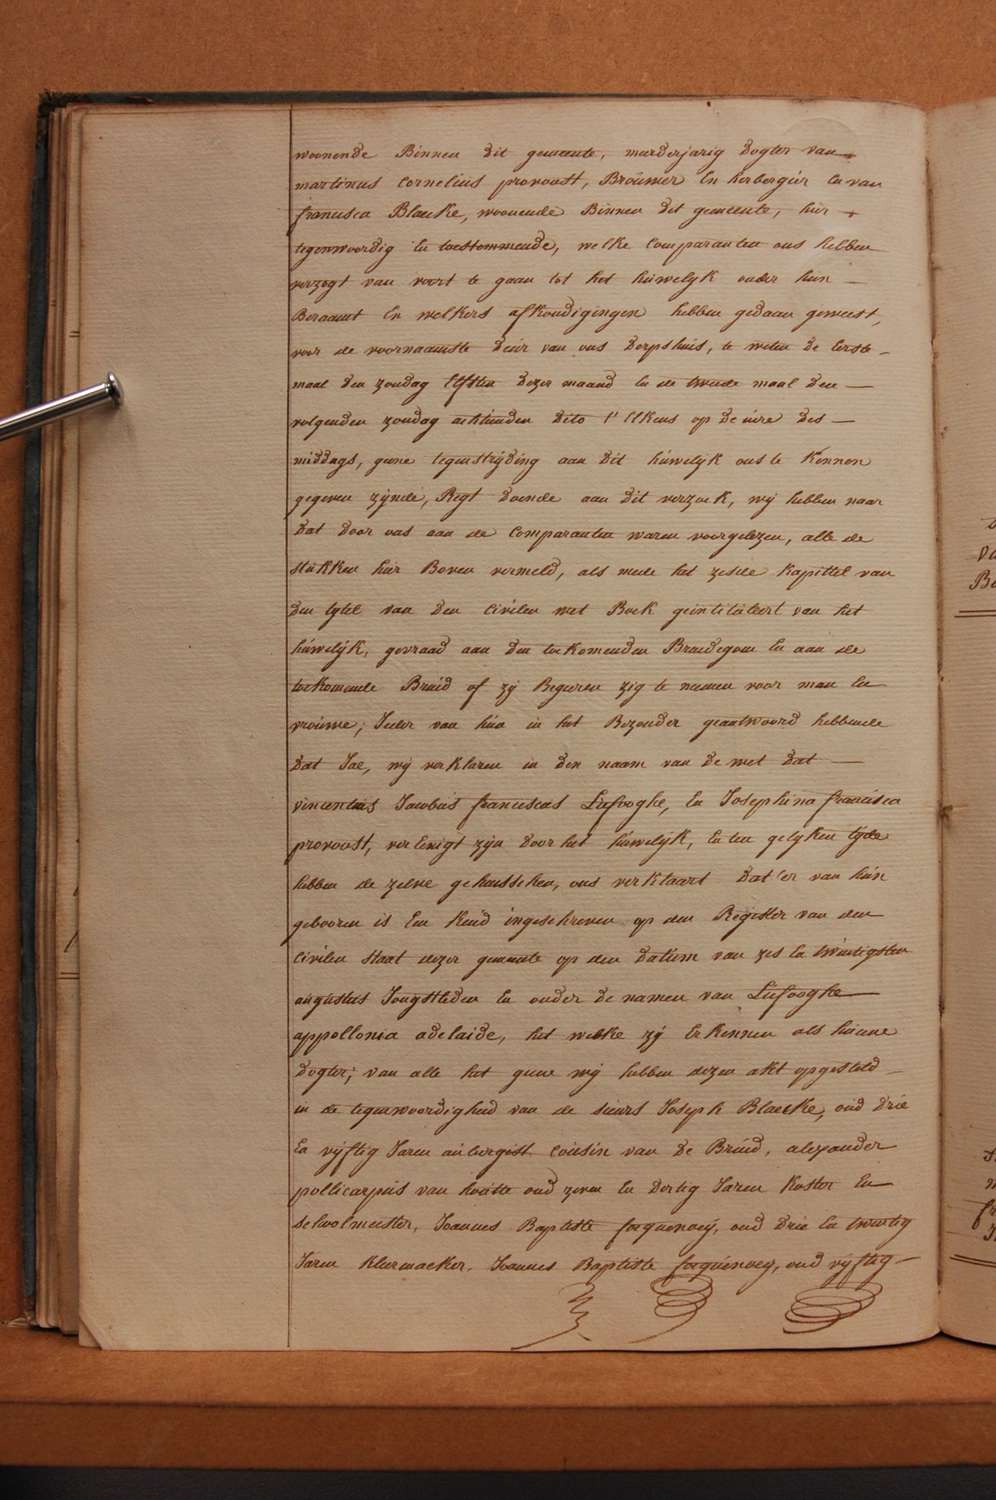 woonende Binnen dit gemeente, meerderjarig dogter van
martinus Cornelius provoost, Broúwer En herbergier En van
francisca Blaeke, woonende Binnen dit gemeente, hier
tegenwoordig En toestemmende, welke Comparanten ons hebben
verzogt van voort te gaan tot het húwelyk onder hun
Beraamt En welkers afkondigingen hebben gedaan geweest,
voor de voornaamste deúr van ons dorpshuis, te weten de Eerste
maal den zondag Elfsten dezer maand En de tweede maal den
volgenden zondag achtienden dito t' Elkens op de úúre des
middags, geene tegenstryding aan dit húwelyk ons te Kennen
gegeven zynde, Regt doende aan dit verzoek, wy hebben naar
dat door ons aan de Comparanten waren voorgelezen, alle de
stúkken hier Boven vermeld, als mede het zesde Kapittel van
den tytel van den Civilen wet Boek geintituleert van het
húwelyk, gevraad aan den toekomenden Bruidegom En aan de
toekomende Brúid of zy Begeeren zig te nemen voor man En
vrouwe; Ieder van hún in het Bezonder geantwoord hebbende
dat Jae, wy verklaren in den naam van de wet dat
vincentius Jacobús franciscus Lefooghe, En Josephina francisca
provoost, verEenigt zyn door het húwelyk, En ten gelyken tyde
hebben de zelve gehuisschen, ons verklaart dat 'er van hún
gebooren is Een Kind ingeschreven op den Register van den
Civilen staat dezer gemeente op den datum van zes En twintigsten
augustus Jongstleden En onder de namen van Lefooghe
appollonia adelaide, het welke zy Erkennen als húnne
dogter; van alle het geene wy hebben dezen akt opgesteld
in de tegenwoordigheid van de sieurs Joseph Blaeke, oúd drie
En vyftig Jaren aúbergist Coúsin van de Brúid, alexander
pollicarpús van hoútte oud zeven En dertig Jaren Koster En
schoolmeester, Joannes Baptiste forquenoey, oud drie En twintig
Jaren Kleermaeker, Joannes Baptiste forquenoey, oud vyftig